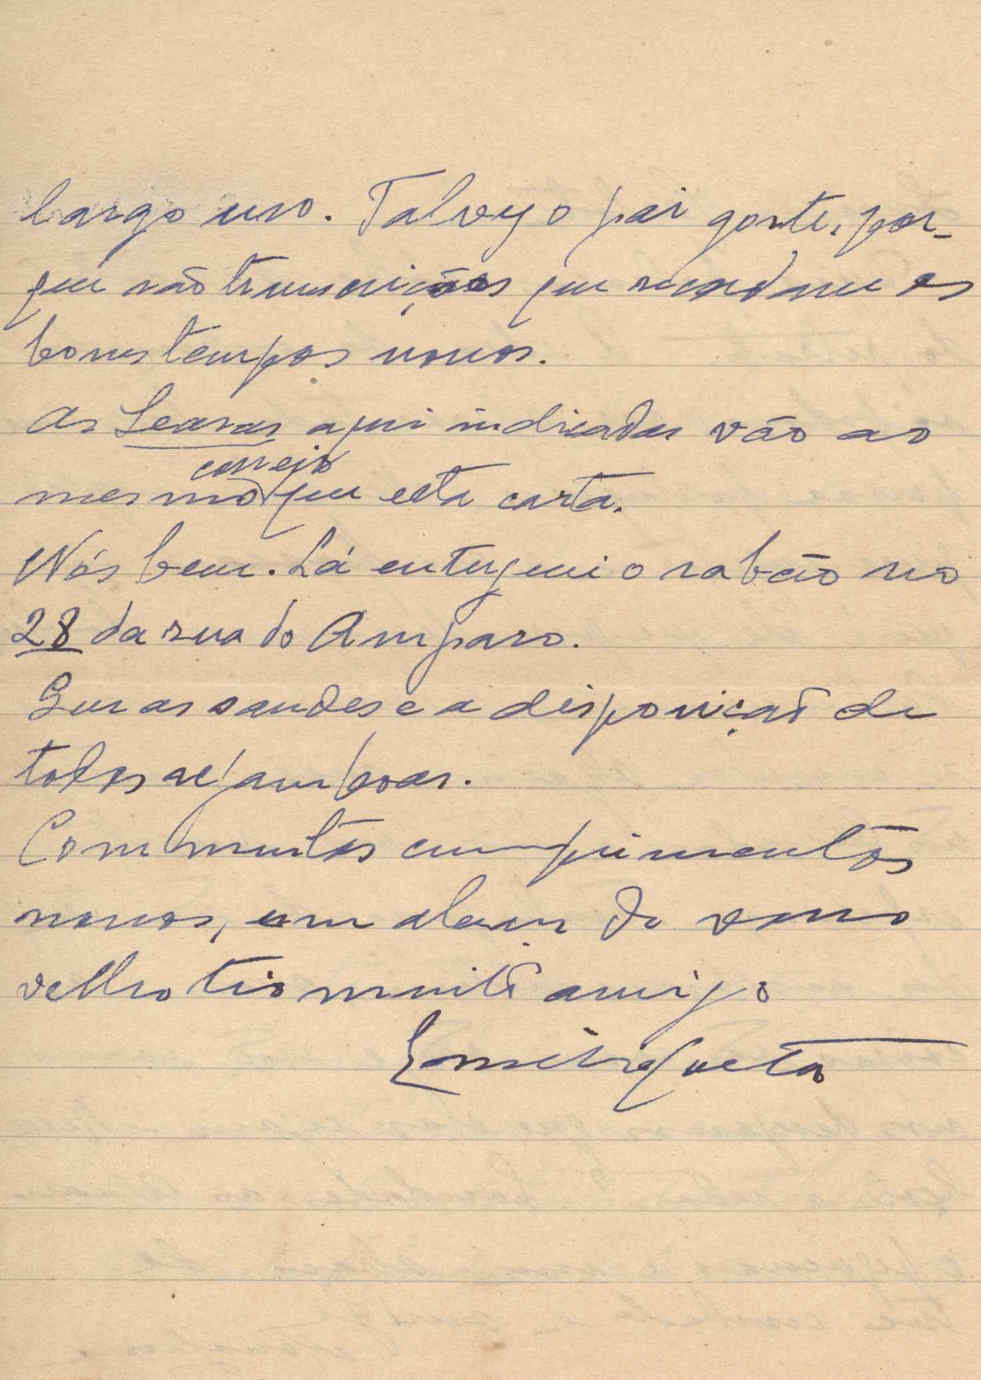 largo uso. Talvez o pai goste, por-
que são transcrições que recordam os
bons tempos nossos.
As Searas aqui indicadas vão ao
mesmo correio que esta carta.
Nós bem. Lá entreguei o sabão no
28 da rua do Amparo.
Que as saudes e a disposição de
todos sejam boas.
Com muitos cumprimentos
nossos, um abraço do vosso
velho tio muito amigo